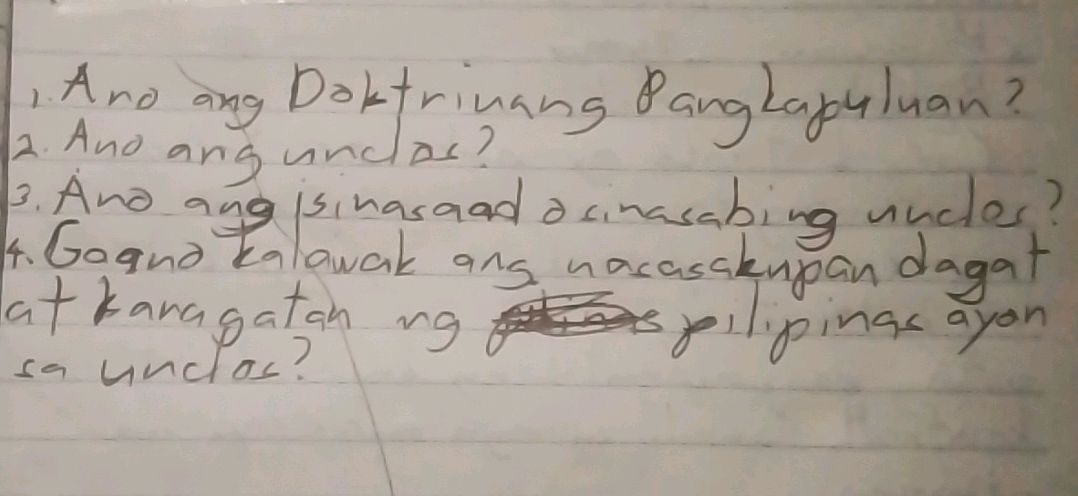 1. Ano ang Doktrinang Pangkapuluan?
2. Ano ang unclos?
3. Ano ang isinasaad o sinasabing unclos?
4. Gaano kalawak ang nacasakupan dagat
at karagatan ng pilipinas ayon
sa unclos?